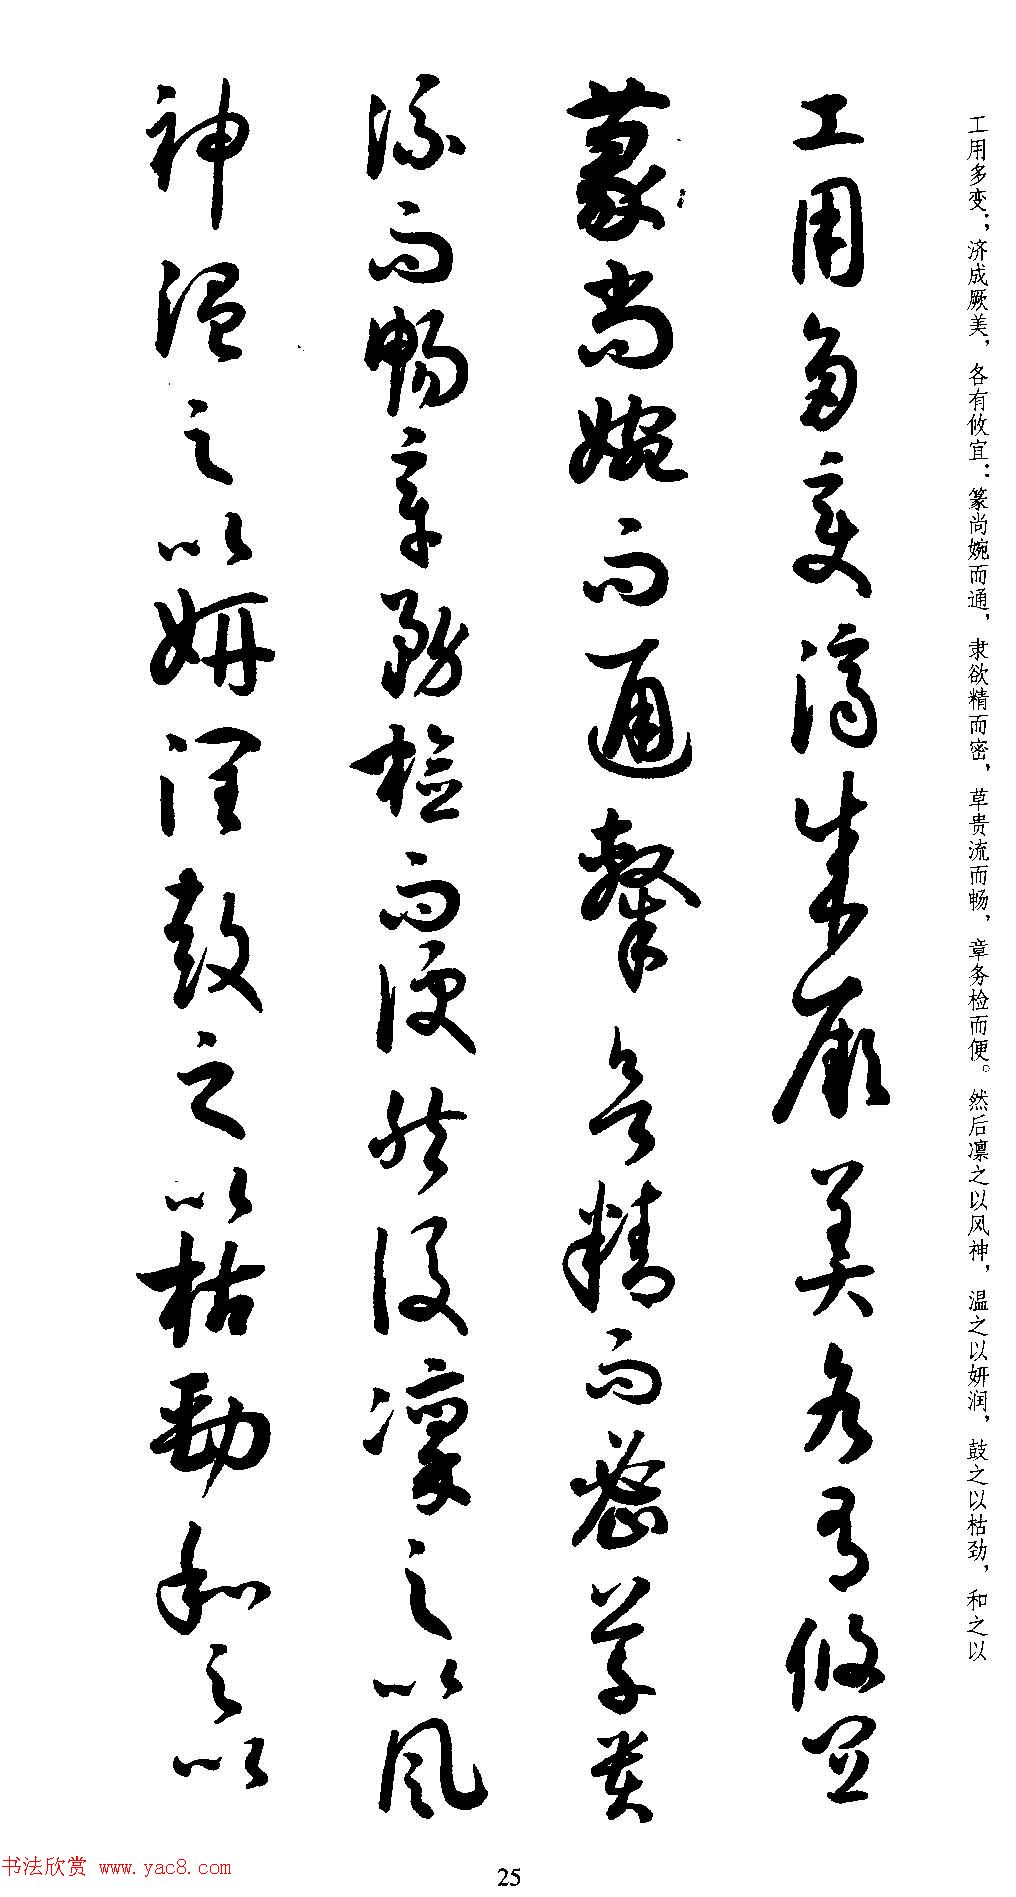 工用多变；济成厥美，各有攸宜：篆尚婉而通，隶欲精而密，草贵流而畅，章务检而便。然后凛之以风神，温之以妍润，鼓之以枯劲，和之以
工用多變濟成厥美各有攸宜
篆尚婉而通隸欲精而密草貴
流而暢章務檢而便然後凜之以風
神温之以妍潤鼓之以枯勁和之以
书法欣赏 www.yac8.com
25